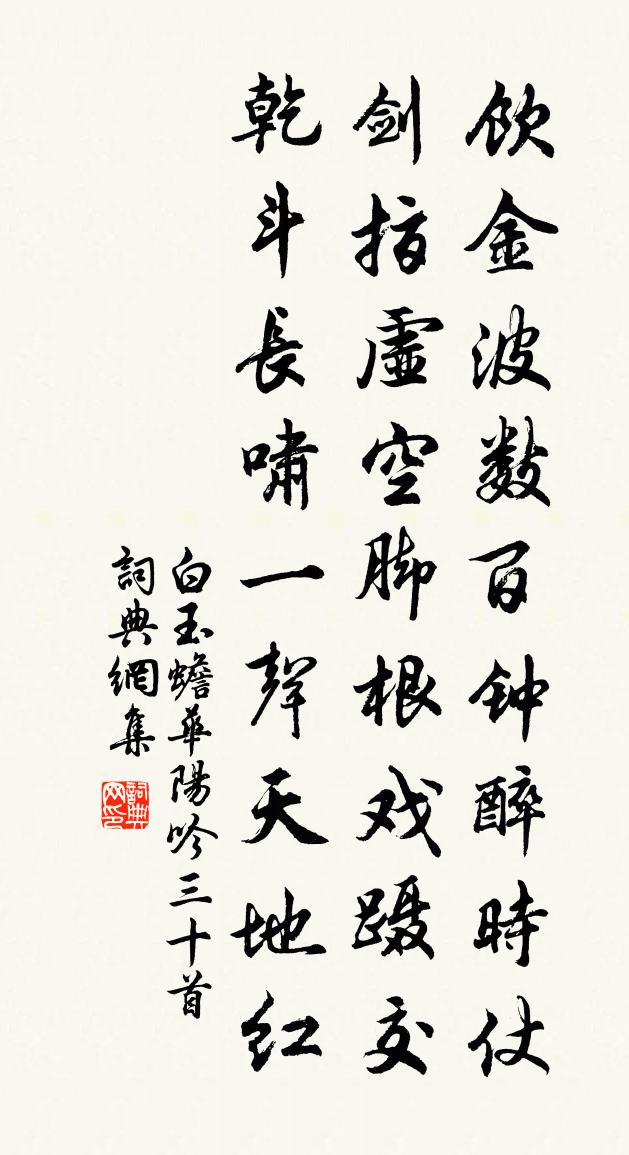 饮金波数百钟醉时仗
剑指虚空脚根戏蹑交
乾斗長啸一聲天地红
白玉蟾華陽吟三十首
詞典網集
詞典网印